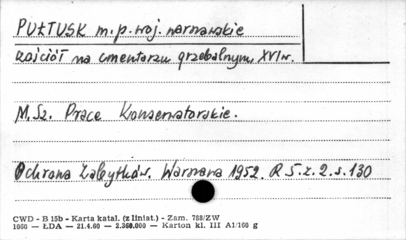 PUŁTUSK m.p. woj. warszawskie
Kościół na cmentarzu grzebalnym, XVI w.
M.Sz. Prace Konserwatorskie.
Ochrona Zabytków. Warszawa 1952. R 5. z. 2. s. 130
CWD - B 15b - Karta katal. (z liniat.) - Zam. 788/ZW
1060 — ŁDA — 21.4.60 — 2.360.000 — Karton kl. III A1/160 g